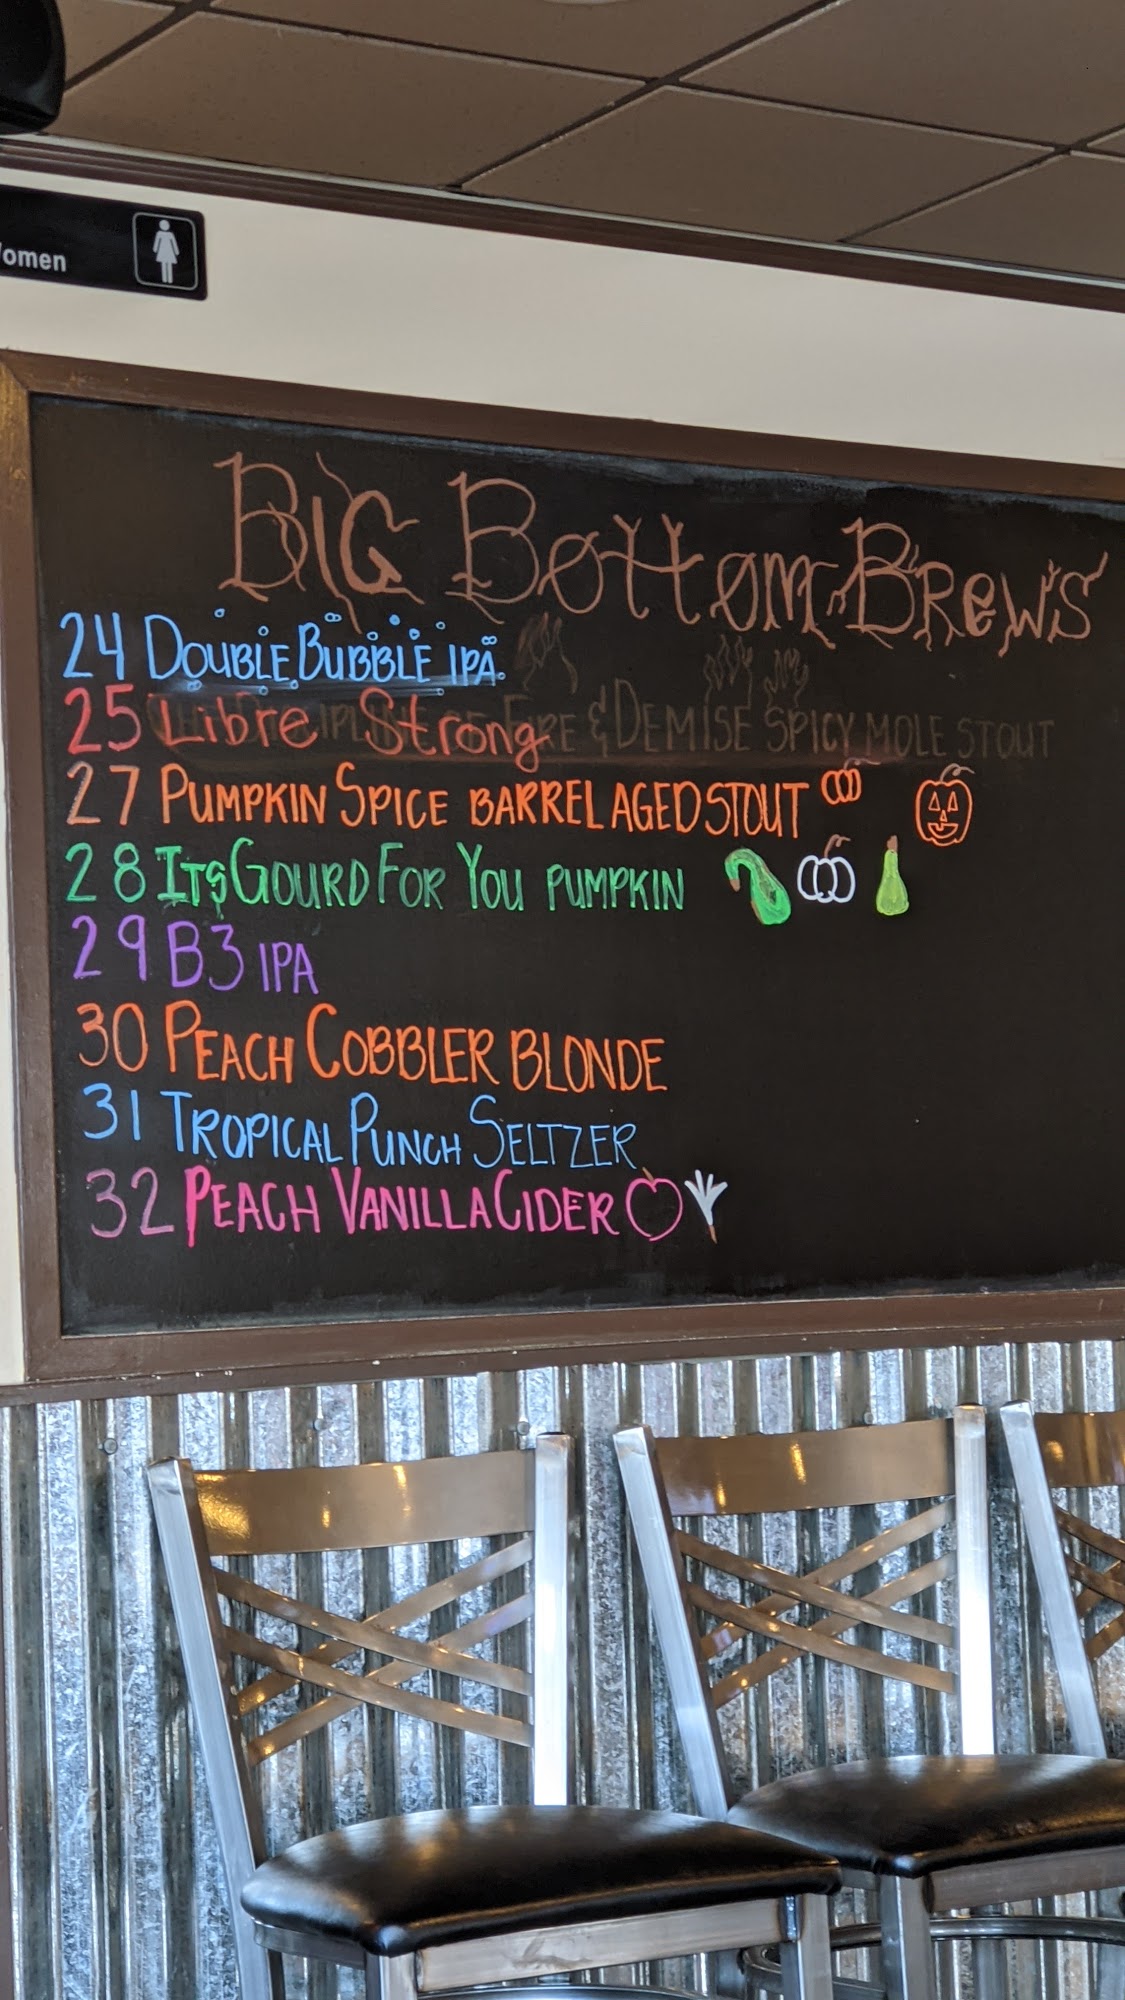 omen
BIG BOTTOM BREWS
24 DOUBLE BUBBLE IPA
25 Libre Strong FIRE & DEMISE SPICY MOLE STOUT
27 PUMPKIN SPICE BARREL AGED STOUT
28 ITS GOURD FOR YOU PUMPKIN
29 B3 IPA
30 PEACH COBBLER BLONDE
31 TROPICAL PUNCH SELTZER
32 PEACH VANILLA CIDER